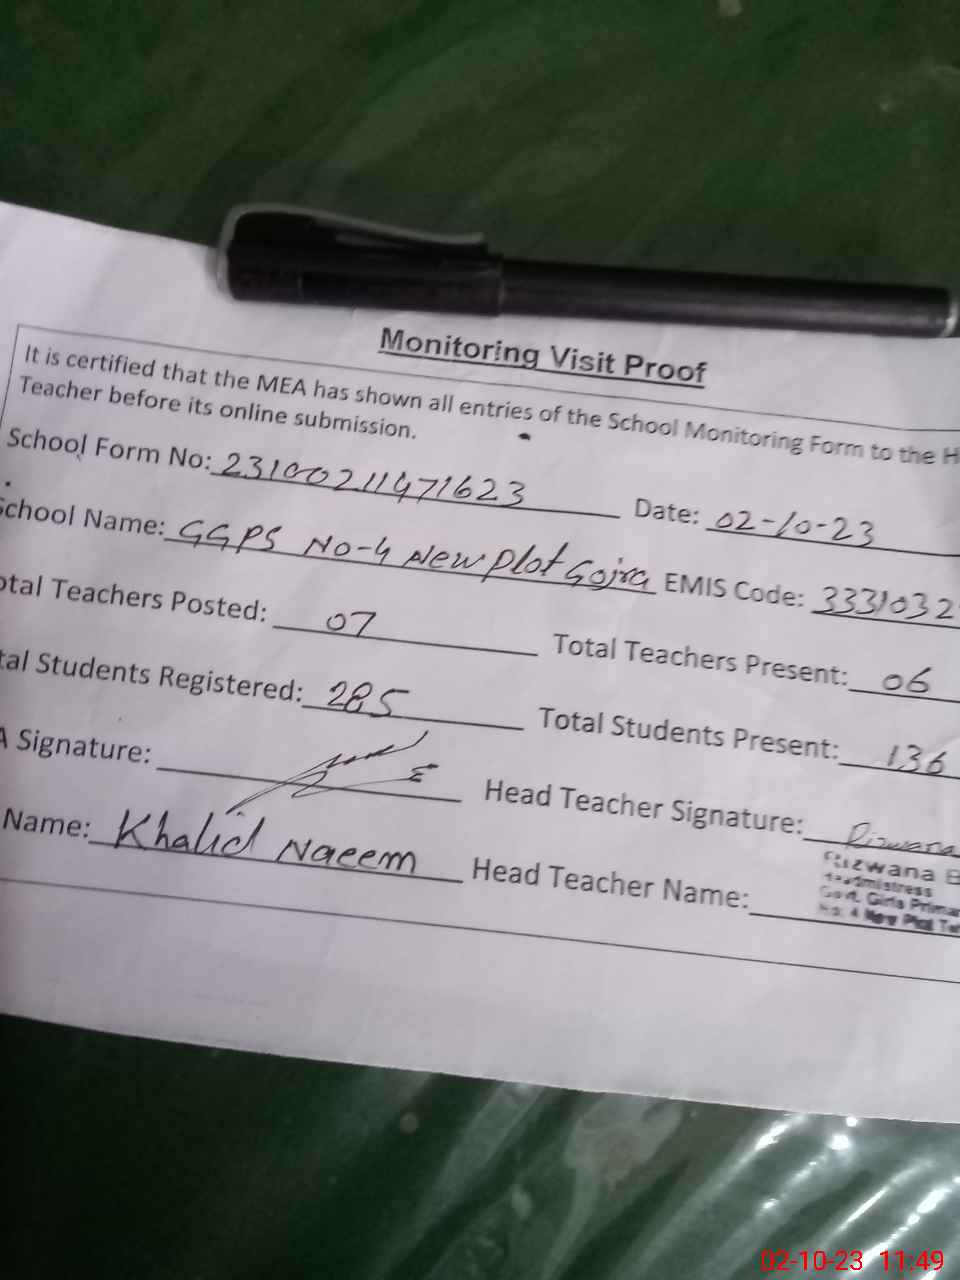 Monitoring Visit Proof
It is certified that the MEA has shown all entries of the School Monitoring Form to the H
Teacher before its online submission.
School Form No: 23100211471623 Date: 02-10-23
School Name: GGPS No-4 New Plot Gojra EMIS Code: 3331032
otal Teachers Posted: 07 Total Teachers Present: 06
tal Students Registered: 285 Total Students Present: 136
A Signature: Head Teacher Signature: Rizwana
Name: Khalid Naeem Head Teacher Name:
Rizwana B
Headmistress
Govt. Girls Primar
No. 4 New Plot
02-10-23 11:49